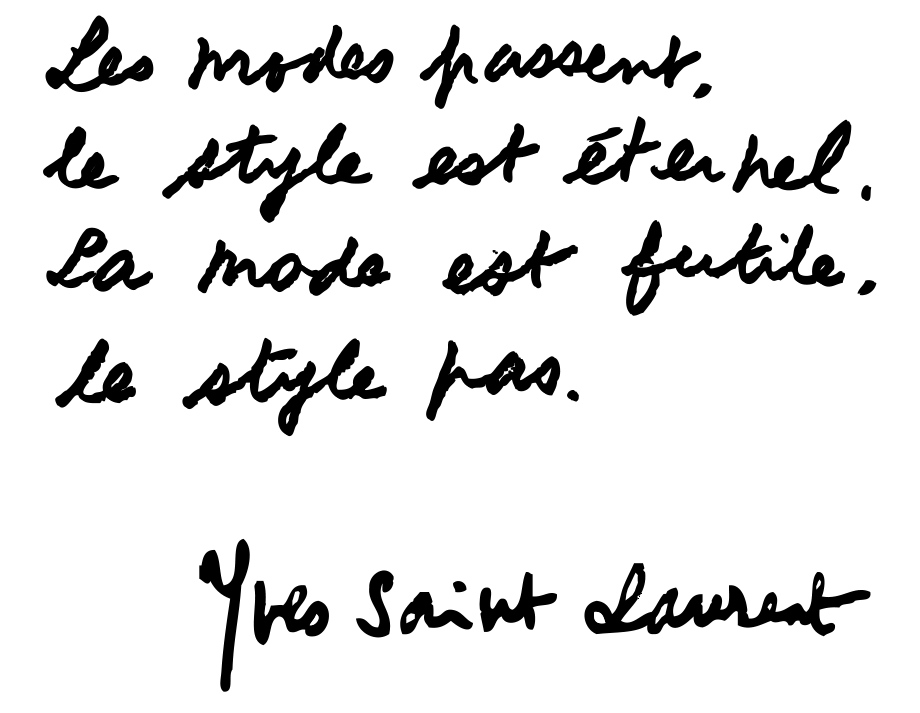 Les modes passent,
le style est éternel.
La mode est futile,
le style pas.
Yves Saint Laurent